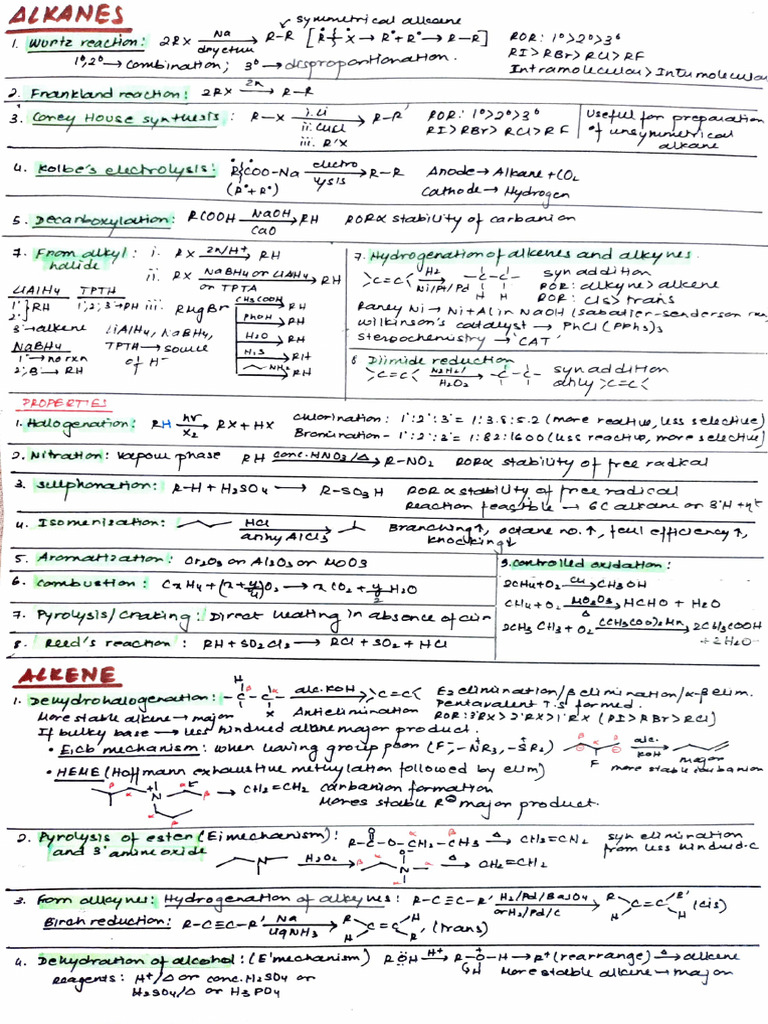 ALKANES
symmetrical alkane
1. Wurtz reaction: 2RX Na dry ether R-R [R-X → R• + R• → R-R] ROR: 1°>2°>3°
1°,2° → combination; 3° → disproportionation. RI>RBr>RCl>RF
Intramolecular > Intermolecular
2. Frankland reaction: 2RX Zn R-R
3. Corey House synthesis: R-X i. Li R-R' ROR: 1°>2°>3° Useful for preparation
ii. CuCl RI>RBr>RCl>RF of unsymmetrical
iii. R'X alkane
4. Kolbe's electrolysis: RCOO-Na electrolysis R-R Anode → Alkane + CO2
(R• + R•) Cathode → Hydrogen
5. Decarboxylation: RCOOH NaOH CaO RH ROR α stability of carbanion
7. From alkyl halide: i. RX Zn/H+ RH
ii. RX NaBH4 or LiAlH4 or TPTA RH
LiAlH4 TPTH iii. RMgBr CH3COOH RH
1° 2° }RH 1°,2°,3° → RH PhOH RH
3° → alkene LiAlH4, NaBH4, H2O RH
NaBH4 TPTH → source H2S RH
1° → no rxn of H⁻ NH2 RH
2°,3° → RH
7. Hydrogenation of alkenes and alkynes.
>C=C< H2 Ni/Pt/Pd -C-C- syn addition
H H ROR: alkyne > alkene
ROR: cis > trans
Raney Ni → Ni + Al in NaOH (Sabatier-Senderson rxn)
Wilkinson's catalyst → PhCl(PPh3)3
stereochemistry → 'CAT'
8 Diimide reduction
>C=C< N2H2/ H2O2 -C-C- syn addition
only >C=C<
PROPERTIES
1. Halogenation: RH hv X2 RX + HX Chlorination: 1°:2°:3° = 1:3.8:5.2 (more reactive, less selective)
Bromination - 1°:2°:3° = 1:82:1600 (less reactive, more selective)
2. Nitration: Vapour phase RH conc. HNO3/Δ R-NO2 ROR α stability of free radical
3. Sulphonation: R-H + H2SO4 → R-SO3H ROR α stability of free radical
Reaction feasible → 6C alkane or 3°H
4. Isomerisation: HCl anhy AlCl3 Branching↑, octane no.↑, fuel efficiency↑,
knocking↓
5. Aromatization: Cr2O3 or Al2O3 or MoO3
6. Combustion: CxHy + (x+y/4)O2 → xCO2 + y/2 H2O
7. Pyrolysis/Craking: Direct heating in absence of air
8. Reed's reaction: RH + SO2Cl2 → RCl + SO2 + HCl
9. controlled oxidation:
2CH4+O2 Cu CH3OH
CH4+O2 MO2O3 Δ HCHO + H2O
2CH3CH3+O2 (CH3COO)2Mn 2CH3COOH
+ 2H2O
ALKENE
1. Dehydrohalogenation: -C-C- alc.KOH >C=C< E2 elimination/β elimination/α-β elim.
H X Antielimination Pentavalent T.S formed.
More stable alkene → major ROR: 3°RX>2°RX>1°RX (RI>RBr>RCl)
If bulky base → less hindered alkene major product.
• E1cb mechanism: when leaving group poor (F⁻, -NR3, -SR2) F alc. KOH major
more stable carbanion
• HEME (Hoffmann exhaustive methylation followed by elim)
→ CH2=CH2 carbanion formation
More stable R⊖ major product.
2. Pyrolysis of ester (Ei mechanism): R-C-O-CH2-CH3 Δ CH2=CH2 syn elimination
and 3° amine oxide from less hindrd.C
N H2O2 N O⁻ Δ CH2=CH2
3. Form alkynes: Hydrogenation of alkynes: R-C≡C-R' H2/Pd/BaSO4 or H2/Pd/C R R' C=C H H (cis)
Birch reduction: R-C≡C-R' Na liq NH3 R H C=C H R' (trans)
4. Dehydration of alcohol: (E' mechanism) ROH H+ R-O-H → R+ (rearrange) Δ alkene
H More stable alkene → major
Reagents: H+/Δ or conc.H2SO4 or
H2SO4/Δ or H3PO4